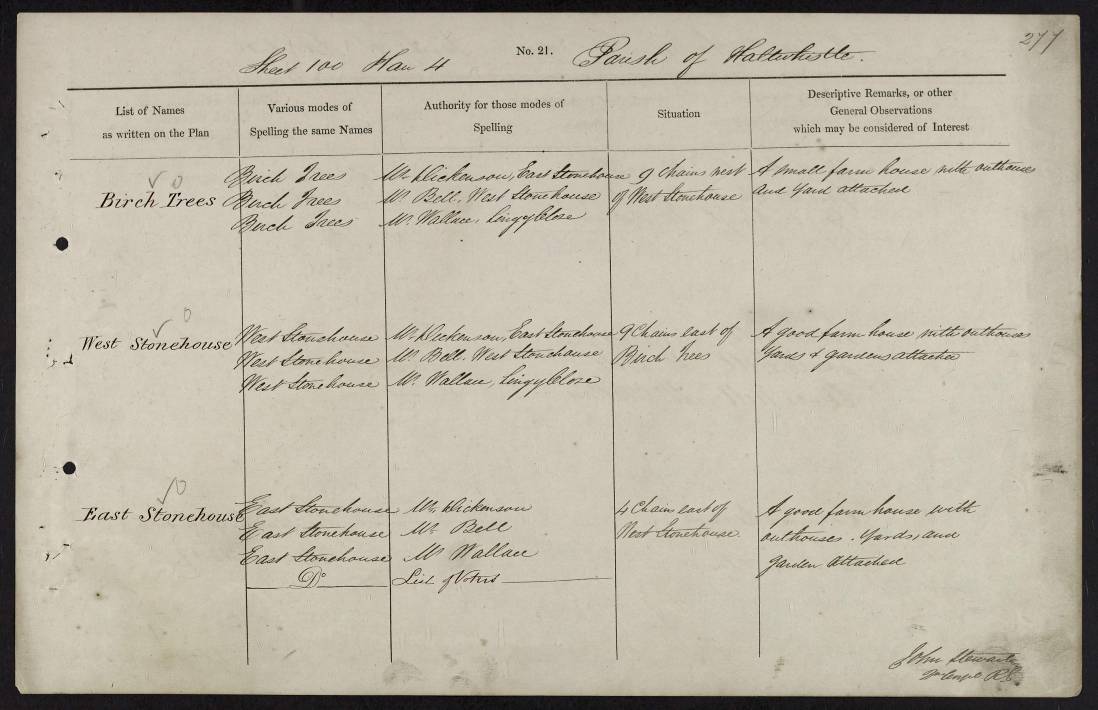 277
No. 21.
Sheet 100 Han 4 Parish of Haltwhistle.
List of Names
as written on the Plan
Various modes of
Spelling the same Names
Authority for those modes of
Spelling
Situation
Descriptive Remarks, or other
General Observations
which may be considered of Interest
Birch Trees
Birch Trees
Birch Trees
Birch Trees
Mr. Dickenson, East Stonehouse
Mr. Bell. West Stonehouse
Mr. Wallace, Lingy Close
9 Chains west
of West Stonehouse
A small farm house with outhouses
and Yard attached
West Stonehouse
West Stonehouse
West Stonehouse
West Stonehouse
Mr. Dickenson, East Stonehouse
Mr. Bell. West Stonehouse
Mr. Wallace, Lingy Close
9 Chains east of
Birch Trees
A good farm house with outhouses
Yards & gardens attached
East Stonehouse
East Stonehouse
East Stonehouse
East Stonehouse
Do
Mr. Dickenson
Mr. Bell
Mr. Wallace
List of Voters
4 Chains east of
West Stonehouse.
A good farm house with
outhouses. Yards, and
garden attached
John Stewart
R.E.